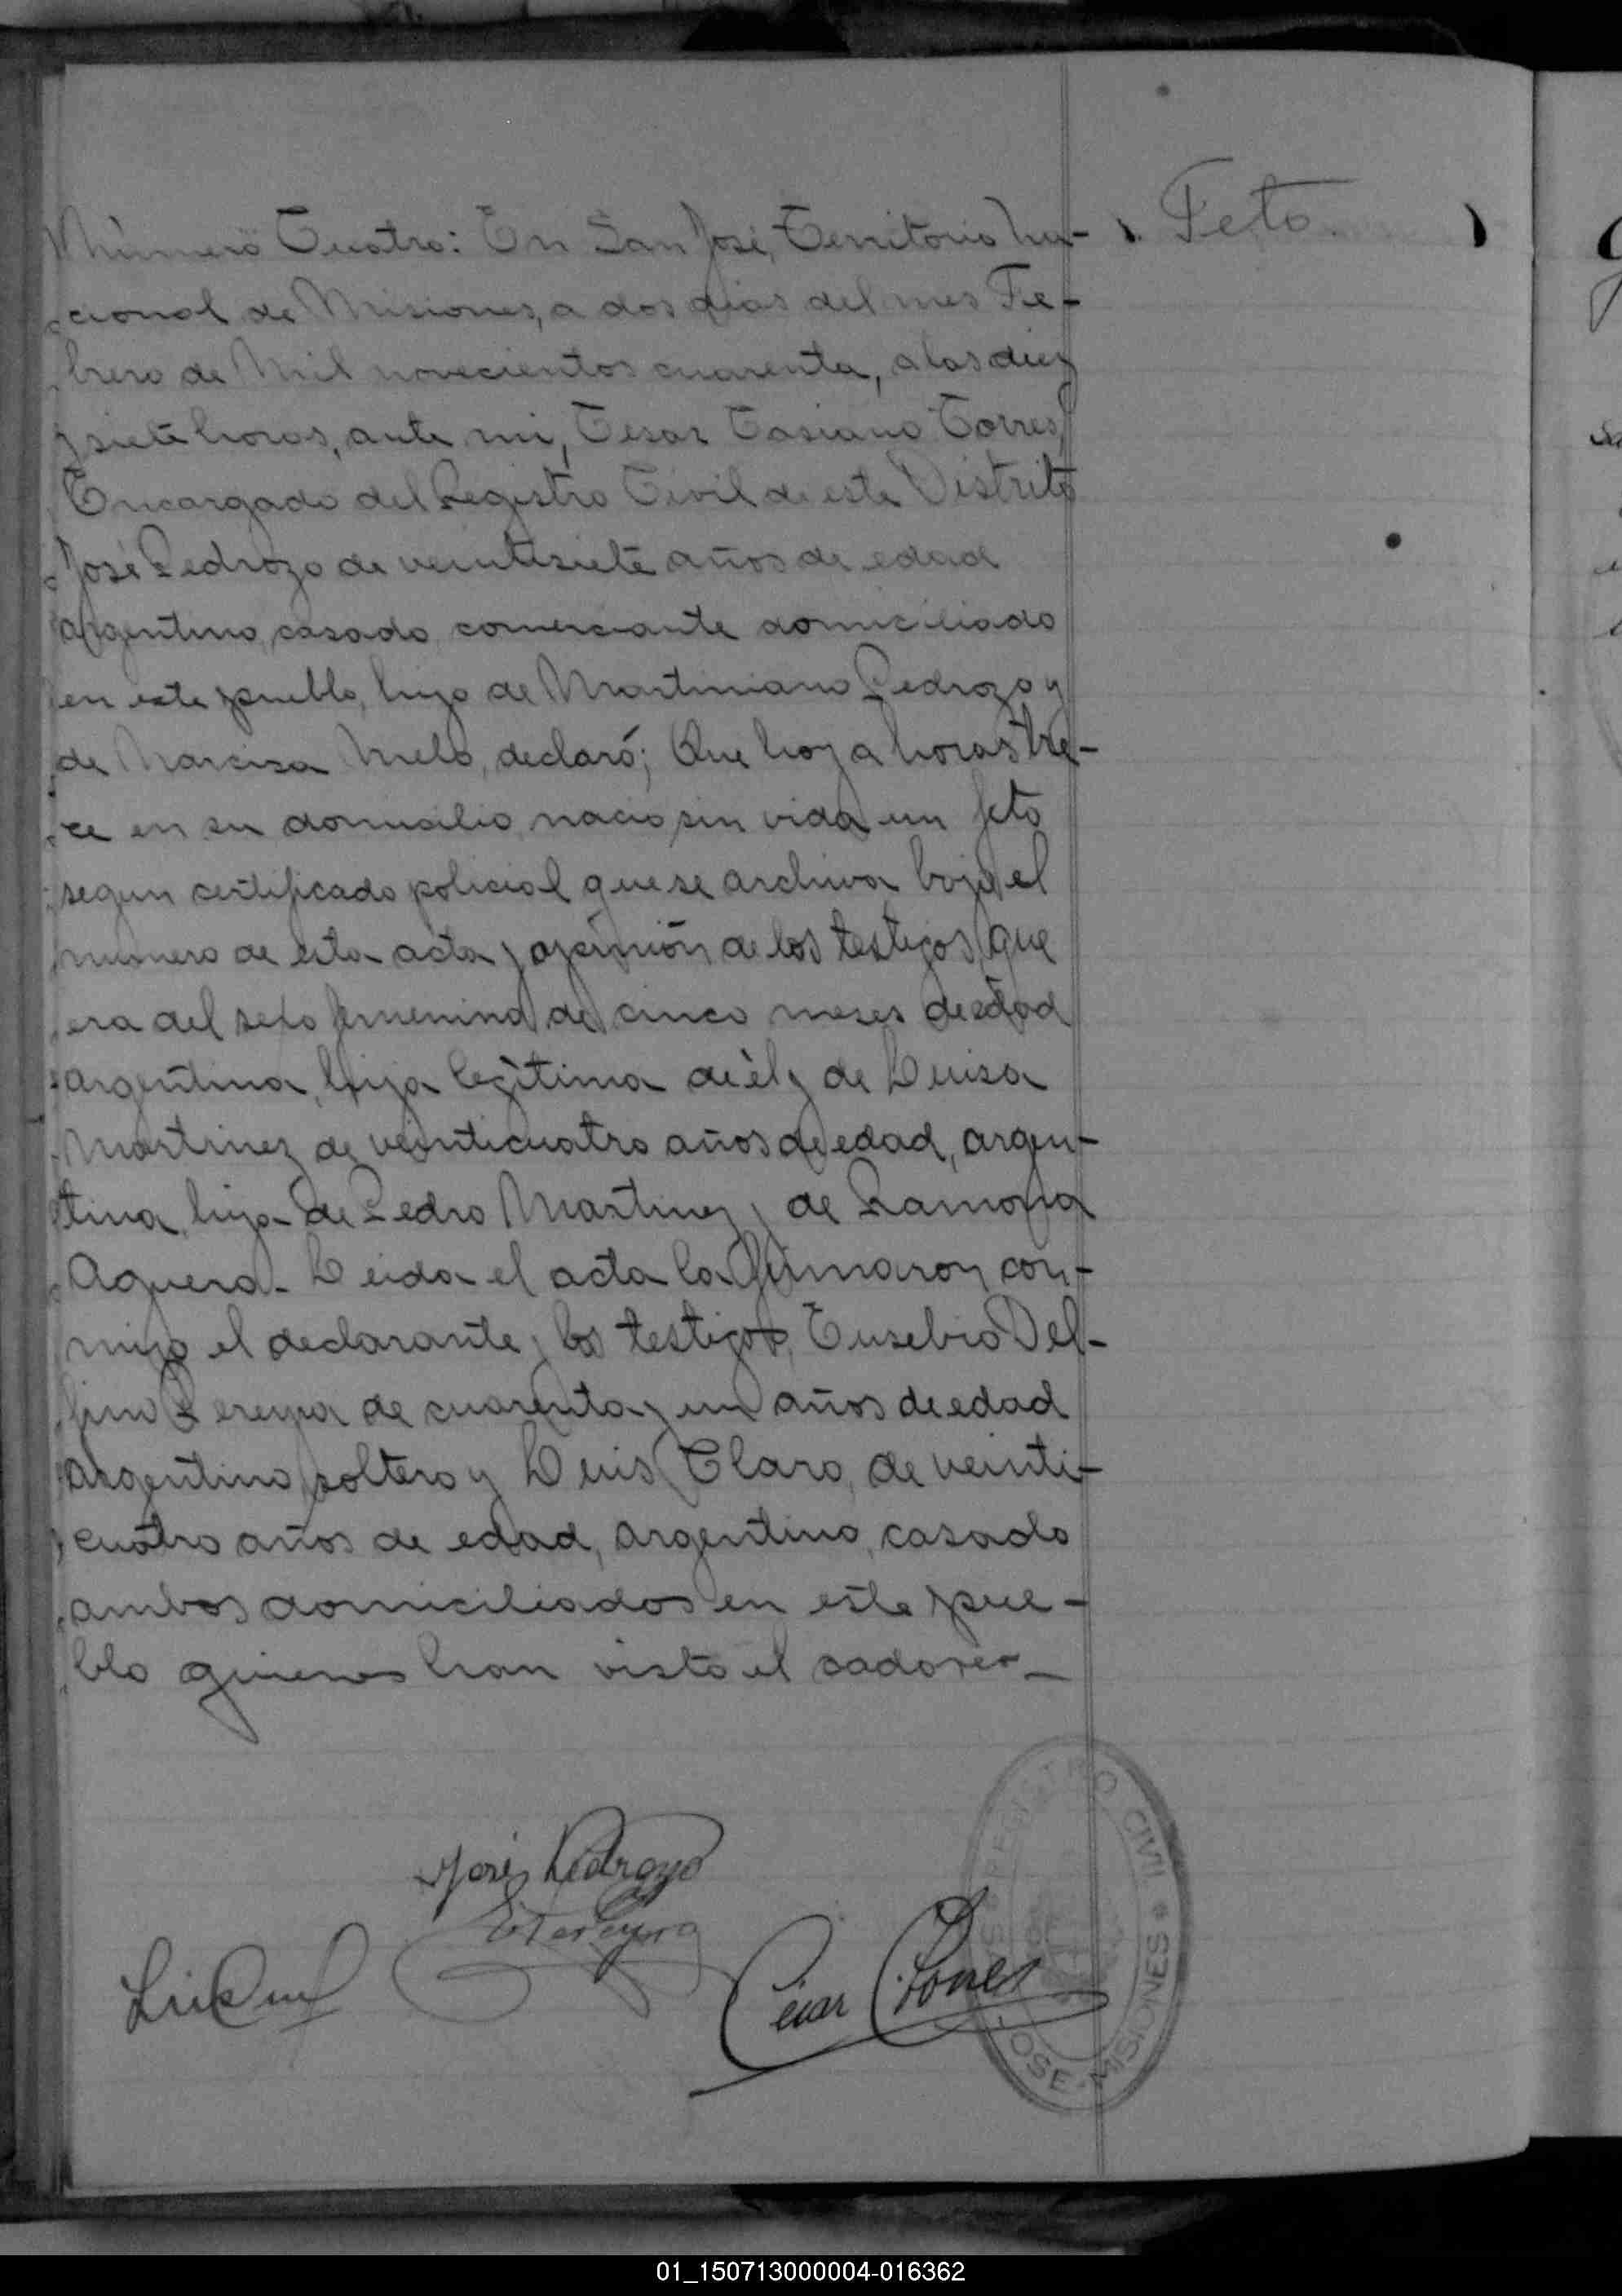 Número Cuatro: En San José, Territorio Na-
cional de Misiones, a dos dias del mes Fe-
brero de Mil novecientos cuarenta, a las diez
y siete horas, ante mi, Cesar Casiano Torres,
Encargado del Registro Civil de este Distrito
José Pedrozo de veintisiete años de edad
argentino, casado, comerciante domiciliado
en este pueblo, hijo de Martiniano Pedrozo y
de Narcisa Melo, declaró; Que hoy a horas tre-
ce en su domicilio, nació sin vida un feto
segun certificado policial que se archiva bajo el
numero de esta acta y opinión de los testigos, que
era del sexo femenino de cinco meses de edad
argentina, hija legìtima de èl y de Luisa
Martinez de veinticuatro años de edad, argen-
tina, hija de Pedro Martinez y de Ramona
Aguera. Leida el acta la firmaron con-
migo el declarante y los testigos, Eusebio Del-
fino Pereyra de cuarenta y un años de edad
argentino, soltero y Luis Claro, de veinti-
cuatro años de edad, argentino, casado
ambos domiciliados en este pue-
blo quienes han visto el cadaver
Feto
José Pedrozo
E Pereyra
Cesar C Torres
REGISTRO CIVIL
JOSE - MISIONES
01_150713000004-016362